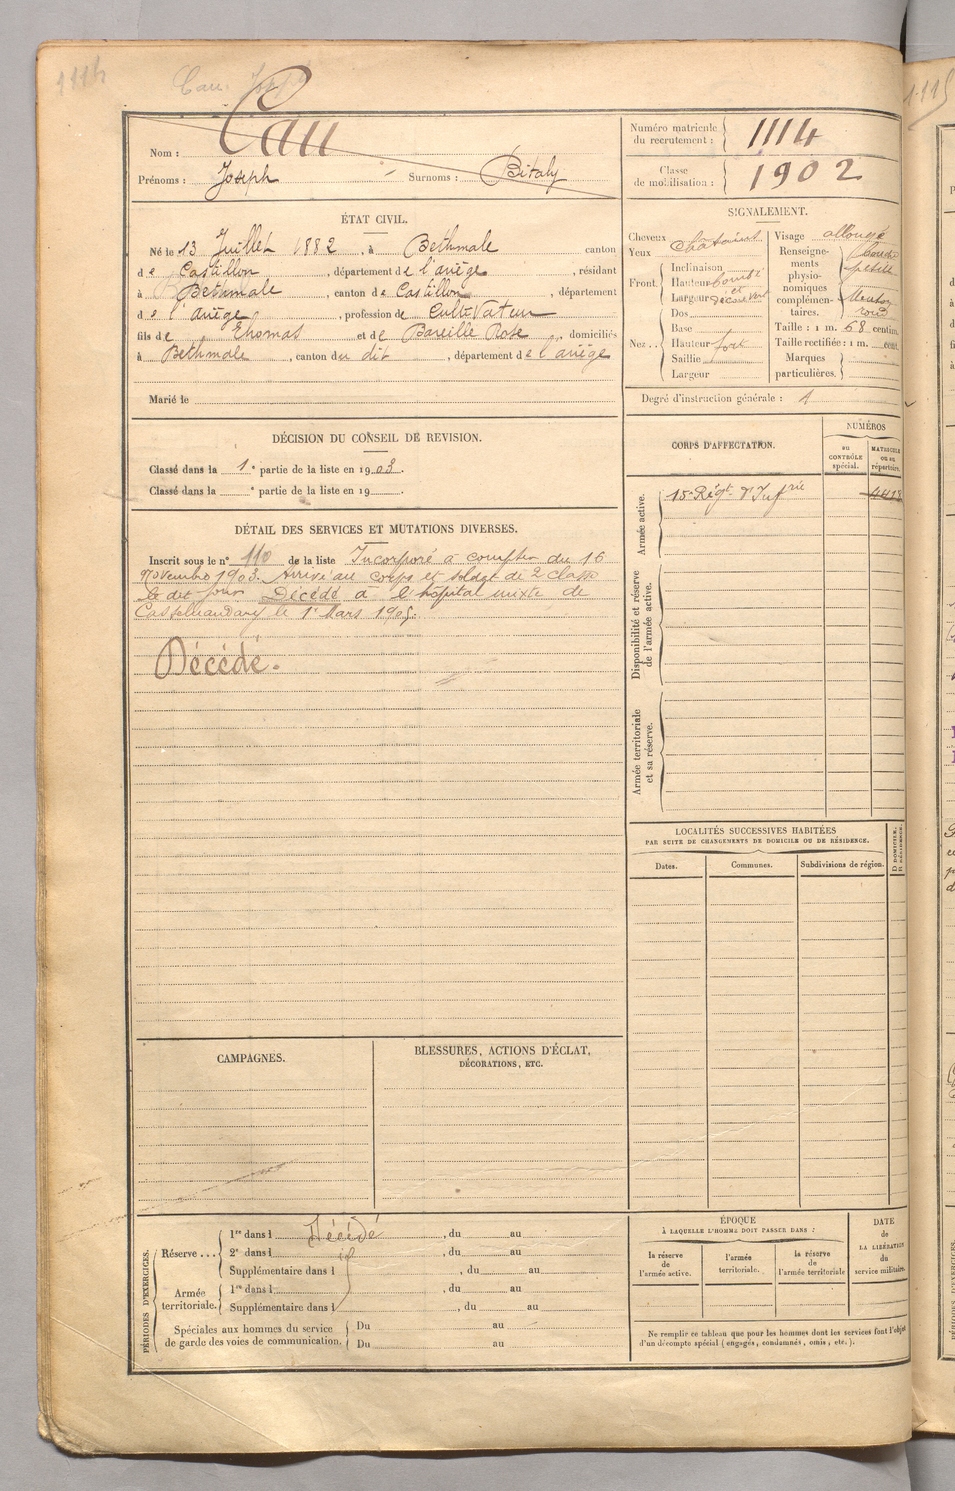 1114
Cau Joseph
Nom : Cau
Prénoms : Joseph Surnoms : Bitaly
Numéro matricule du recrutement : 1114
Classe de mobilisation : 1902
ÉTAT CIVIL.
Né le 13 Juillet 1882, à Bethmale canton
de Castillon, département de l'ariège, résidant
à Bethmale, canton de Castillon, département
de l'ariège, profession de Cultivateur
fils de Thomas et de Bareille Rose, domiciliés
à Bethmale, canton du dit, département de l'ariège
Marié le
SIGNALEMENT.
Cheveux châtains
Yeux
Front. Inclinaison
Hauteur bombé
Largeur et découvert
Nez.. Dos
Base
Hauteur fort
Saillie
Largeur
Visage allongé
Renseignements physionomiques complémentaires. bouche petite
Menton rond
Taille : 1 m. 68 centim.
Taille rectifiée : 1 m. cent.
Marques particulières.
Degré d'instruction générale : 1
DÉCISION DU CONSEIL DE REVISION.
Classé dans la 1e partie de la liste en 1903.
Classé dans la e partie de la liste en 19 .
DÉTAIL DES SERVICES ET MUTATIONS DIVERSES.
Inscrit sous le n° 110 de la liste Incorporé à compter du 16
novembre 1903. Arrivé au corps et soldat de 2e classe
le dit jour Décédé à l'hôpital mixte de
Castelnaudary le 1er Mars 1905.
Décédé.
CORPS D'AFFECTATION.
NUMÉROS
au CONTRÔLE spécial.
MATRICULE ou au répertoire.
Armée active.
15e Régt d'Infrie
Disponibilité et réserve de l'armée active.
Armée territoriale et sa réserve.
LOCALITÉS SUCCESSIVES HABITÉES
PAR SUITE DE CHANGEMENTS DE DOMICILE OU DE RÉSIDENCE.
Dates.
Communes.
Subdivisions de région.
D DOMICILE.
R RÉSIDENCE.
CAMPAGNES.
BLESSURES, ACTIONS D'ÉCLAT,
DÉCORATIONS, ETC.
PÉRIODES D'EXERCICES.
Réserve ... 1re dans l Décédé, du au
2e dans l, du au
Supplémentaire dans l, du au
Armée territoriale. 1re dans l, du au
Supplémentaire dans l, du au
Spéciales aux hommes du service de garde des voies de communication. Du au
Du au
ÉPOQUE
À LAQUELLE L'HOMME DOIT PASSER DANS :
la réserve de l'armée active.
l'armée territoriale.
la réserve de l'armée territoriale
DATE de LA LIBÉRATION du service militaire.
Ne remplir ce tableau que pour les hommes dont les services font l'objet
d'un décompte spécial (engagés, condamnés, omis, etc.).